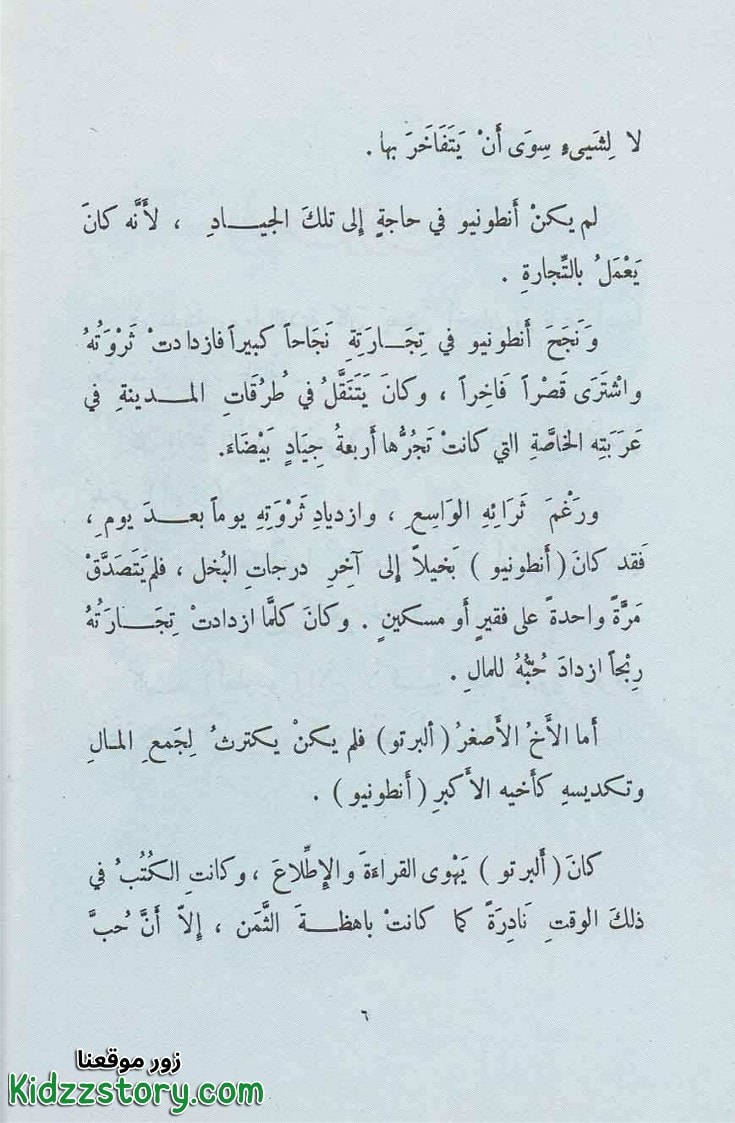 لا لِشَيىءٍ سِوَى أَنْ يَتَفَاخَرَ بها .
لم يكنْ أنطونيو في حاجةٍ إلى تلكَ الجيادِ ، لأَنَّه كانَ
يَعْمَلُ بالتِّجارةِ .
وَنَجَحَ أَنطونيو في تِجَارَتِهِ نَجَاحاً كبيراً فازدادتْ ثَرْوَتُهُ
واشْتَرَى قَصْراً فَاخِراً ، وكانَ يَتَنَقَّلُ في طُرُقَاتِ المدينةِ في
عَرَبَتِه الخاصَّةِ التي كانتْ تَجُرُّها أربعةُ جِيَادٍ بَيْضَاءَ.
ورَغْمَ ثَرَائِهِ الوَاسِعِ ، وازديادِ ثَرْوَتِهِ يوماً بعدَ يومٍ ،
فَقد كانَ ( أَنطونيو ) بَخيلاً إلى آخِرِ درجاتِ البُخل ، فلم يَتَصَدَّقْ
مَرَّةً واحدةً على فقيرٍ أو مسكينٍ . وكانَ كلمَّا ازدادتْ تِجَارَتُهُ
رِبْحاً ازدادَ حُبُّهُ للمالِ .
أما الأَخُ الأَصغرُ ( ألبرتو ) فلم يكنْ يكترثُ لِجَمعِ المالِ
وتكديسهِ كأَخيه الأكبرِ ( أَنطونيو ) .
كانَ ( أَلبرتو ) يَهْوى القراءَةَ والإِطِّلاعَ ، وكانتِ الكُتُبُ في
ذلكَ الوقتِ نَادِرَةً كما كانتْ باهظةَ الثَّمَن ، إلاّ أَنَّ حُبَّ
٦
زور موقعنا
Kidzzstory.com